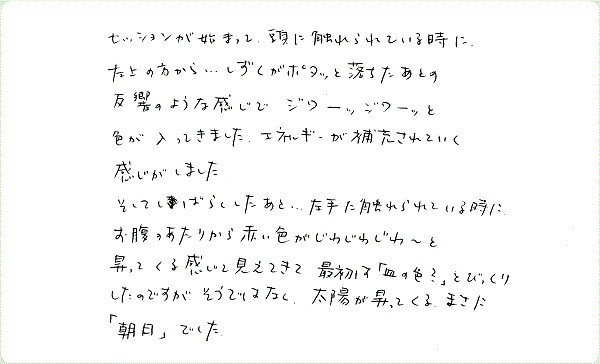 セッションが始まって、頭に触れられている時に、
左上の方から…しずくがポタッと落ちたあとの
反響のような感じで ジワーッジワーッと
色が入ってきました。エネルギーが補充されていく
感じがしました
そしてしばらくしたあと…左手に触れられている時に、
お腹のあたりから赤い色がじわじわじわ〜と
昇ってくる感じで見えてきて 最初は「血の色？」とびっくり
したのですが そうではなく、太陽が昇ってくる、まさに
「朝日」でした。